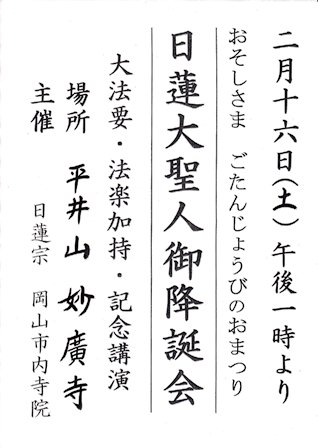 二月十六日(土)午後一時より
おそしさま ごたんじょうびのおまつり
日蓮大聖人御降誕会
大法要・法楽加持・記念講演
場所 平井山 妙廣寺
主催 日蓮宗 岡山市内寺院